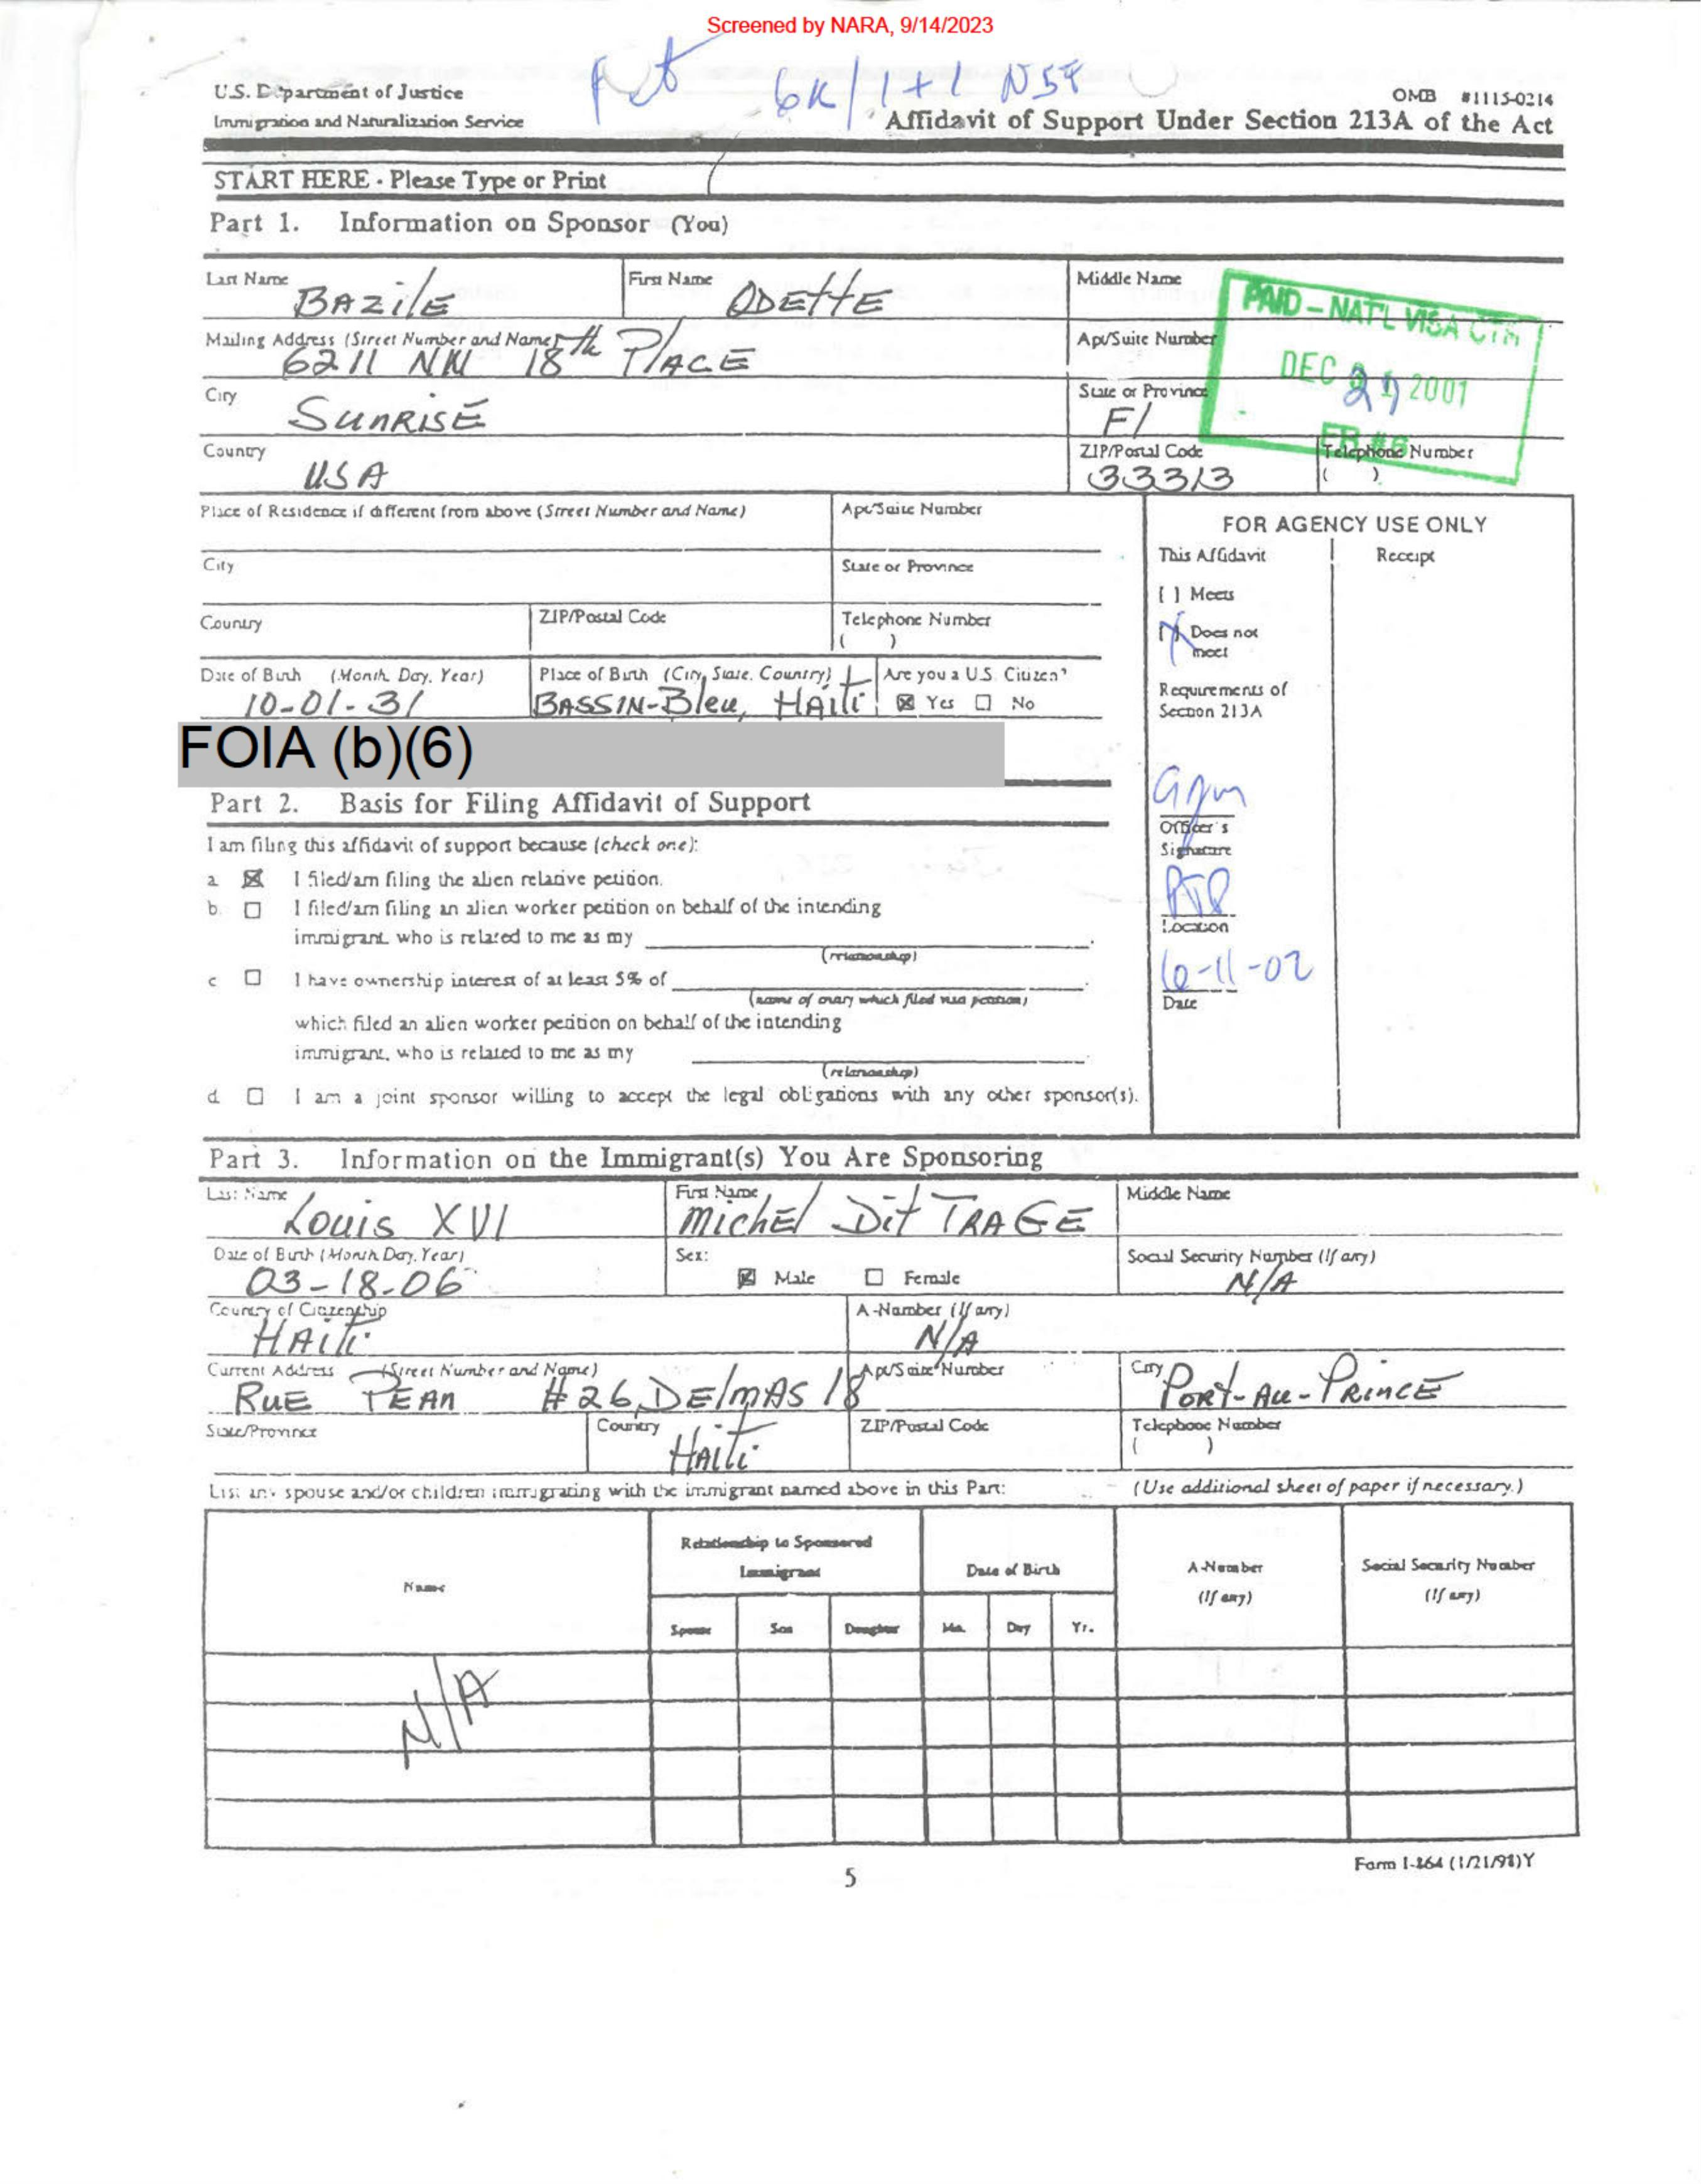 Screened by NARA, 9/14/2023
6K/1+1 NSF
U.S. Department of Justice
OMB #1115-0214
Immigration and Naturalization Service
Affidavit of Support Under Section 213A of the Act
START HERE - Please Type or Print
Part 1. Information on Sponsor (You)
Last Name BAZilE First Name ODEttE Middle Name
PAID - NAT'L VISA CTR
DEC 2001
FR #6
Mailing Address (Street Number and Name) 6211 NW 18th PlACE Apt/Suite Number
City SUNRISE State or Province Fl
Country USA ZIP/Postal Code 33313 Telephone Number ( )
Place of Residence if different from above (Street Number and Name) Apt/Suite Number
City State or Province
Country ZIP/Postal Code Telephone Number ( )
Date of Birth (Month, Day, Year) 10-01-31 Place of Birth (City, State, Country) BASSIN-Bleu, HAiti Are you a U.S. Citizen? ☒ Yes ☐ No
FOIA (b)(6)
FOR AGENCY USE ONLY
This Affidavit Receipt
[ ] Meets
[X] Does not meet
Requirements of
Section 213A
Officer's
Signature
Location
6-11-02
Date
Part 2. Basis for Filing Affidavit of Support
I am filing this affidavit of support because (check one):
a. ☒ I filed/am filing the alien relative petition.
b. ☐ I filed/am filing an alien worker petition on behalf of the intending
immigrant, who is related to me as my
(relationship)
c ☐ I have ownership interest of at least 5% of
(name of entity which filed visa petition)
which filed an alien worker petition on behalf of the intending
immigrant, who is related to me as my
(relationship)
d. ☐ I am a joint sponsor willing to accept the legal obligations with any other sponsor(s).
Part 3. Information on the Immigrant(s) You Are Sponsoring
Last Name Louis XVI First Name MichEl Dit TRAGE Middle Name
Date of Birth (Month, Day, Year) 03-18-06 Sex: ☒ Male ☐ Female Social Security Number (If any) N/A
Country of Citizenship HAiti A-Number (If any) N/A
Current Address (Street Number and Name) RUE PEAN #26, DElmAS 18 Apt/Suite Number City PORt-Au-PRiNCE
State/Province Country HAiti ZIP/Postal Code Telephone Number ( )
List any spouse and/or children immigrating with the immigrant named above in this Part: (Use additional sheet of paper if necessary.)
Name Relationship to Sponsored Immigrant Date of Birth A-Number (If any) Social Security Number (If any)
Spouse Son Daughter Mo. Day Yr.
N/A
5
Form I-864 (1/21/98)Y